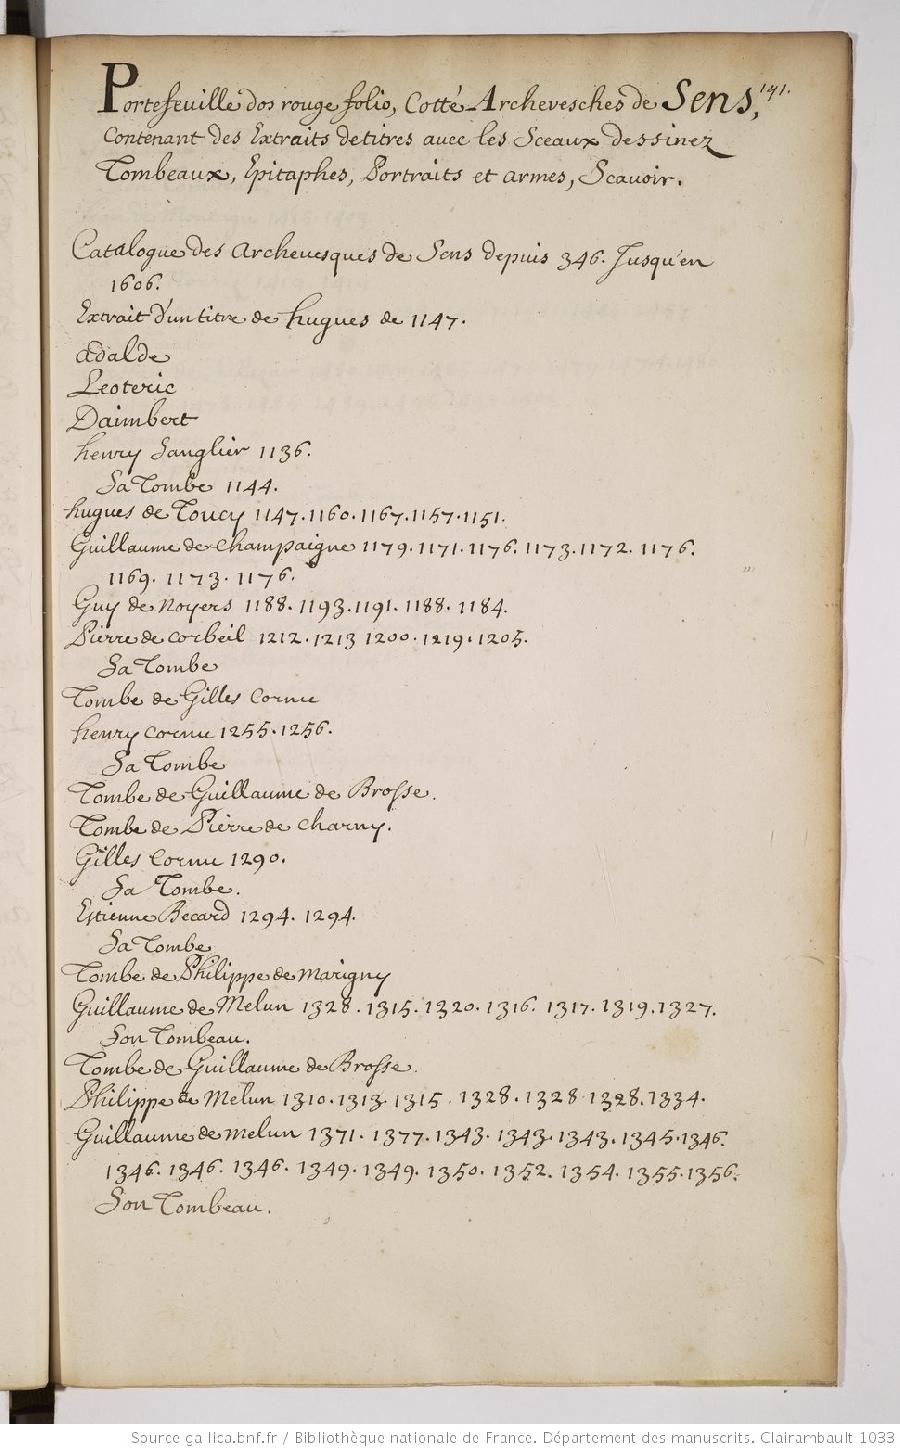 Portefeuille dos rouge folio, Cotté Archevesches de Sens, 141.
Contenant des Extraits de titres avec les Sceaux dessinez
Tombeaux, Epitaphes, Portraits et armes, Scavoir.
Catalogue des archevesques de Sens depuis 346. Jusqu'en
1606.
Extrait d'un titre de hugues de 1147.
Adalde
Leoteric
Daimbert
henry Sanglier 1136.
Sa Tombe 1144.
hugues de Toucy 1147. 1160. 1167. 1157. 1151.
Guillaume de Champaigne 1179. 1171. 1176. 1173. 1172. 1176.
1169. 1173. 1176.
Guy de Noyers 1188. 1193. 1191. 1188. 1184.
Pierre de corbeil 1212. 1213 1200. 1219. 1205.
Sa Tombe
Tombe de Gilles Cornu
henry cornu 1255. 1256.
Sa Tombe
Tombe de Guillaume de Brosse.
Tombe de Pierre de charny.
Gilles Cornu 1290.
Sa Tombe.
Estienne Becard 1294. 1294.
Sa Tombe
Tombe de Philippe de Marigny
Guillaume de Melun 1328. 1315. 1320. 1316. 1317. 1319. 1327.
Son Tombeau.
Tombe de Guillaume de Brosse.
Philippe de Melun 1310. 1313. 1315 1328. 1328 1328. 1334.
Guillaume de melun 1371. 1377. 1343. 1343. 1343. 1345. 1346.
1346. 1346. 1346. 1349. 1349. 1350. 1352. 1354. 1355. 1356.
Son Tombeau.
Source gallica.bnf.fr / Bibliothèque nationale de France. Département des manuscrits. Clairambault 1033